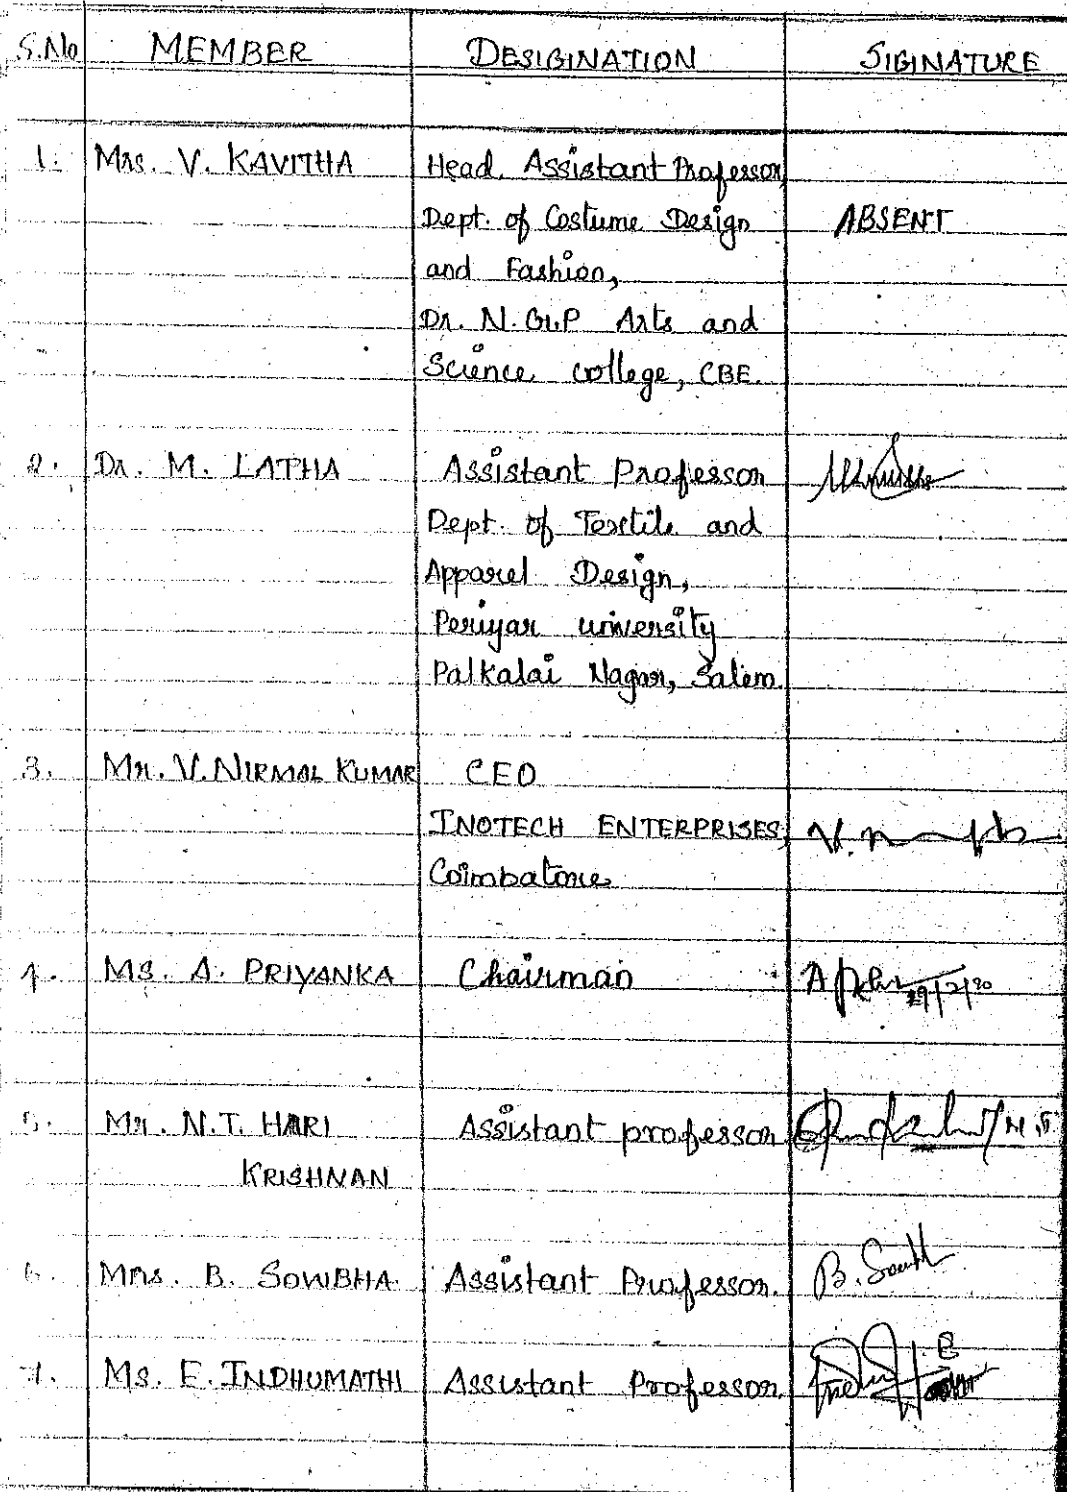 S.No MEMBER DESIGINATION SIGINATURE
1. Mrs. V. KAVITHA Head, Assistant Professor,
Dept. of Costume Design ABSENT
and Fashion,
Dr. N.G.P Arts and
Science college, CBE.
2. Dr. M. LATHA Assistant Professor
Dept. of Textile and
Apparel Design,
Periyar university
Palkalai Nagar, Salem.
3. Mr. V. NIRMAL KUMAR CEO
INOTECH ENTERPRISES,
Coimbatore
4. MS. A. PRIYANKA Chairman
5. Mr. N.T. HARI Assistant professor
KRISHNAN
6. Mrs. B. SOWBHA. Assistant Professor.
7. Ms. E. INDHUMATHI Assistant Professor.